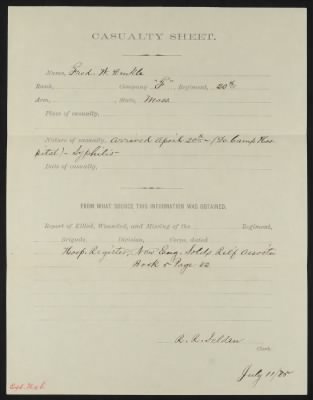 CASUALTY SHEET.
Name, Fred. W.
Rank, Company "F" Regiment, 20th
Arm, State, Mass
Place of casualty,
Nature of casualty, Arrived April 20th - (To Camp Hos
pital) - Syphilis -
Date of casualty,
FROM WHAT SOURCE THIS INFORMATION WAS OBTAINED.
Report of Killed, Wounded, and Missing of the Regiment,
Brigade, Division, Corps, dated
Hosp. Register, New Eng. Solds Relf Associa
Book 5 Page 82
R. R. Selden
Clerk.
July 11/85